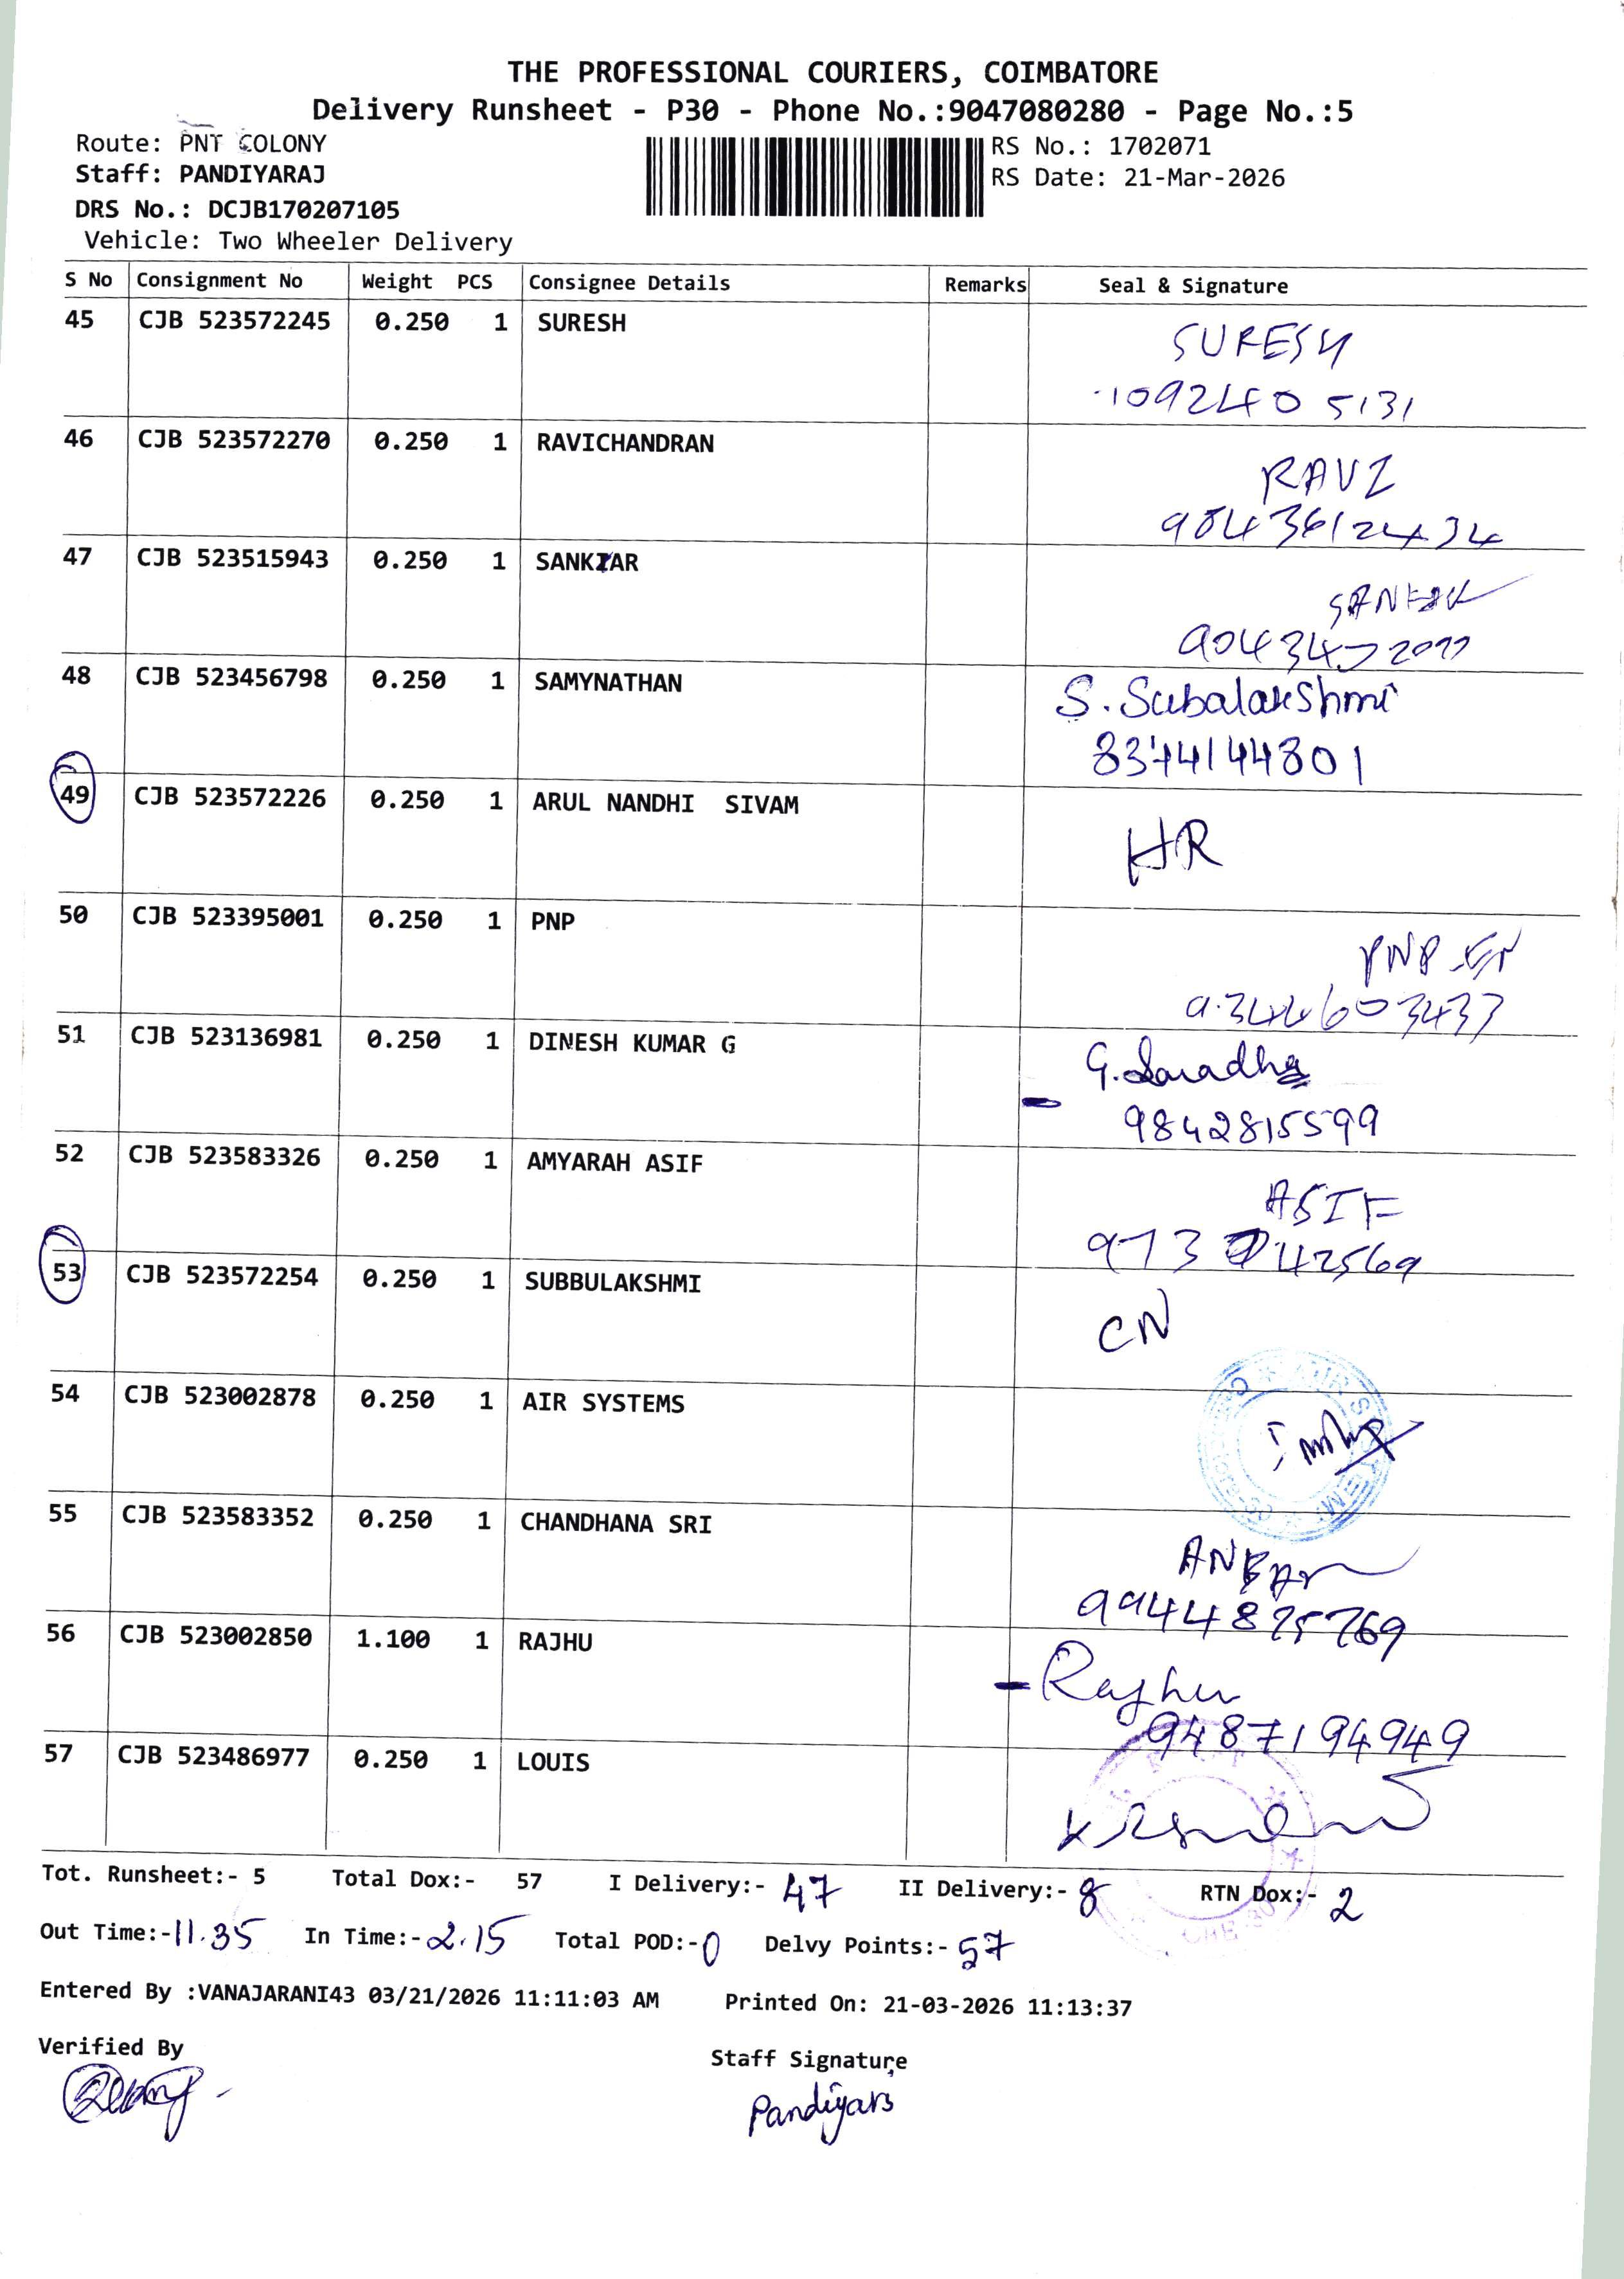 THE PROFESSIONAL COURIERS, COIMBATORE
Delivery Runsheet - P30 - Phone No.:9047080280 - Page No.:5
Route: PNT COLONY
RS No.: 1702071
Staff: PANDIYARAJ
RS Date: 21-Mar-2026
DRS No.: DCJB170207105
Vehicle: Two Wheeler Delivery
S No Consignment No Weight PCS Consignee Details Remarks Seal & Signature
45 CJB 523572245 0.250 1 SURESH
SURESH
46 CJB 523572270 0.250 1 RAVICHANDRAN
RAVI
47 CJB 523515943 0.250 1 SANKAR
48 CJB 523456798 0.250 1 SAMYNATHAN S. Subalakshmi
49 CJB 523572226 0.250 1 ARUL NANDHI SIVAM
HR
50 CJB 523395001 0.250 1 PNP
PNP
51 CJB 523136981 0.250 1 DINESH KUMAR G
9842815599
52 CJB 523583326 0.250 1 AMYARAH ASIF
ASIF
53 CJB 523572254 0.250 1 SUBBULAKSHMI
CN
54 CJB 523002878 0.250 1 AIR SYSTEMS
55 CJB 523583352 0.250 1 CHANDHANA SRI
56 CJB 523002850 1.100 1 RAJHU
Rajhu
9487194949
57 CJB 523486977 0.250 1 LOUIS
Tot. Runsheet:- 5 Total Dox:- 57 I Delivery:- 47 II Delivery:- 8 RTN Dox:- 2
Out Time:- 11.35 In Time:- 2.15 Total POD:- 0 Delvy Points:- 57
Entered By :VANAJARANI43 03/21/2026 11:11:03 AM Printed On: 21-03-2026 11:13:37
Verified By
Staff Signature